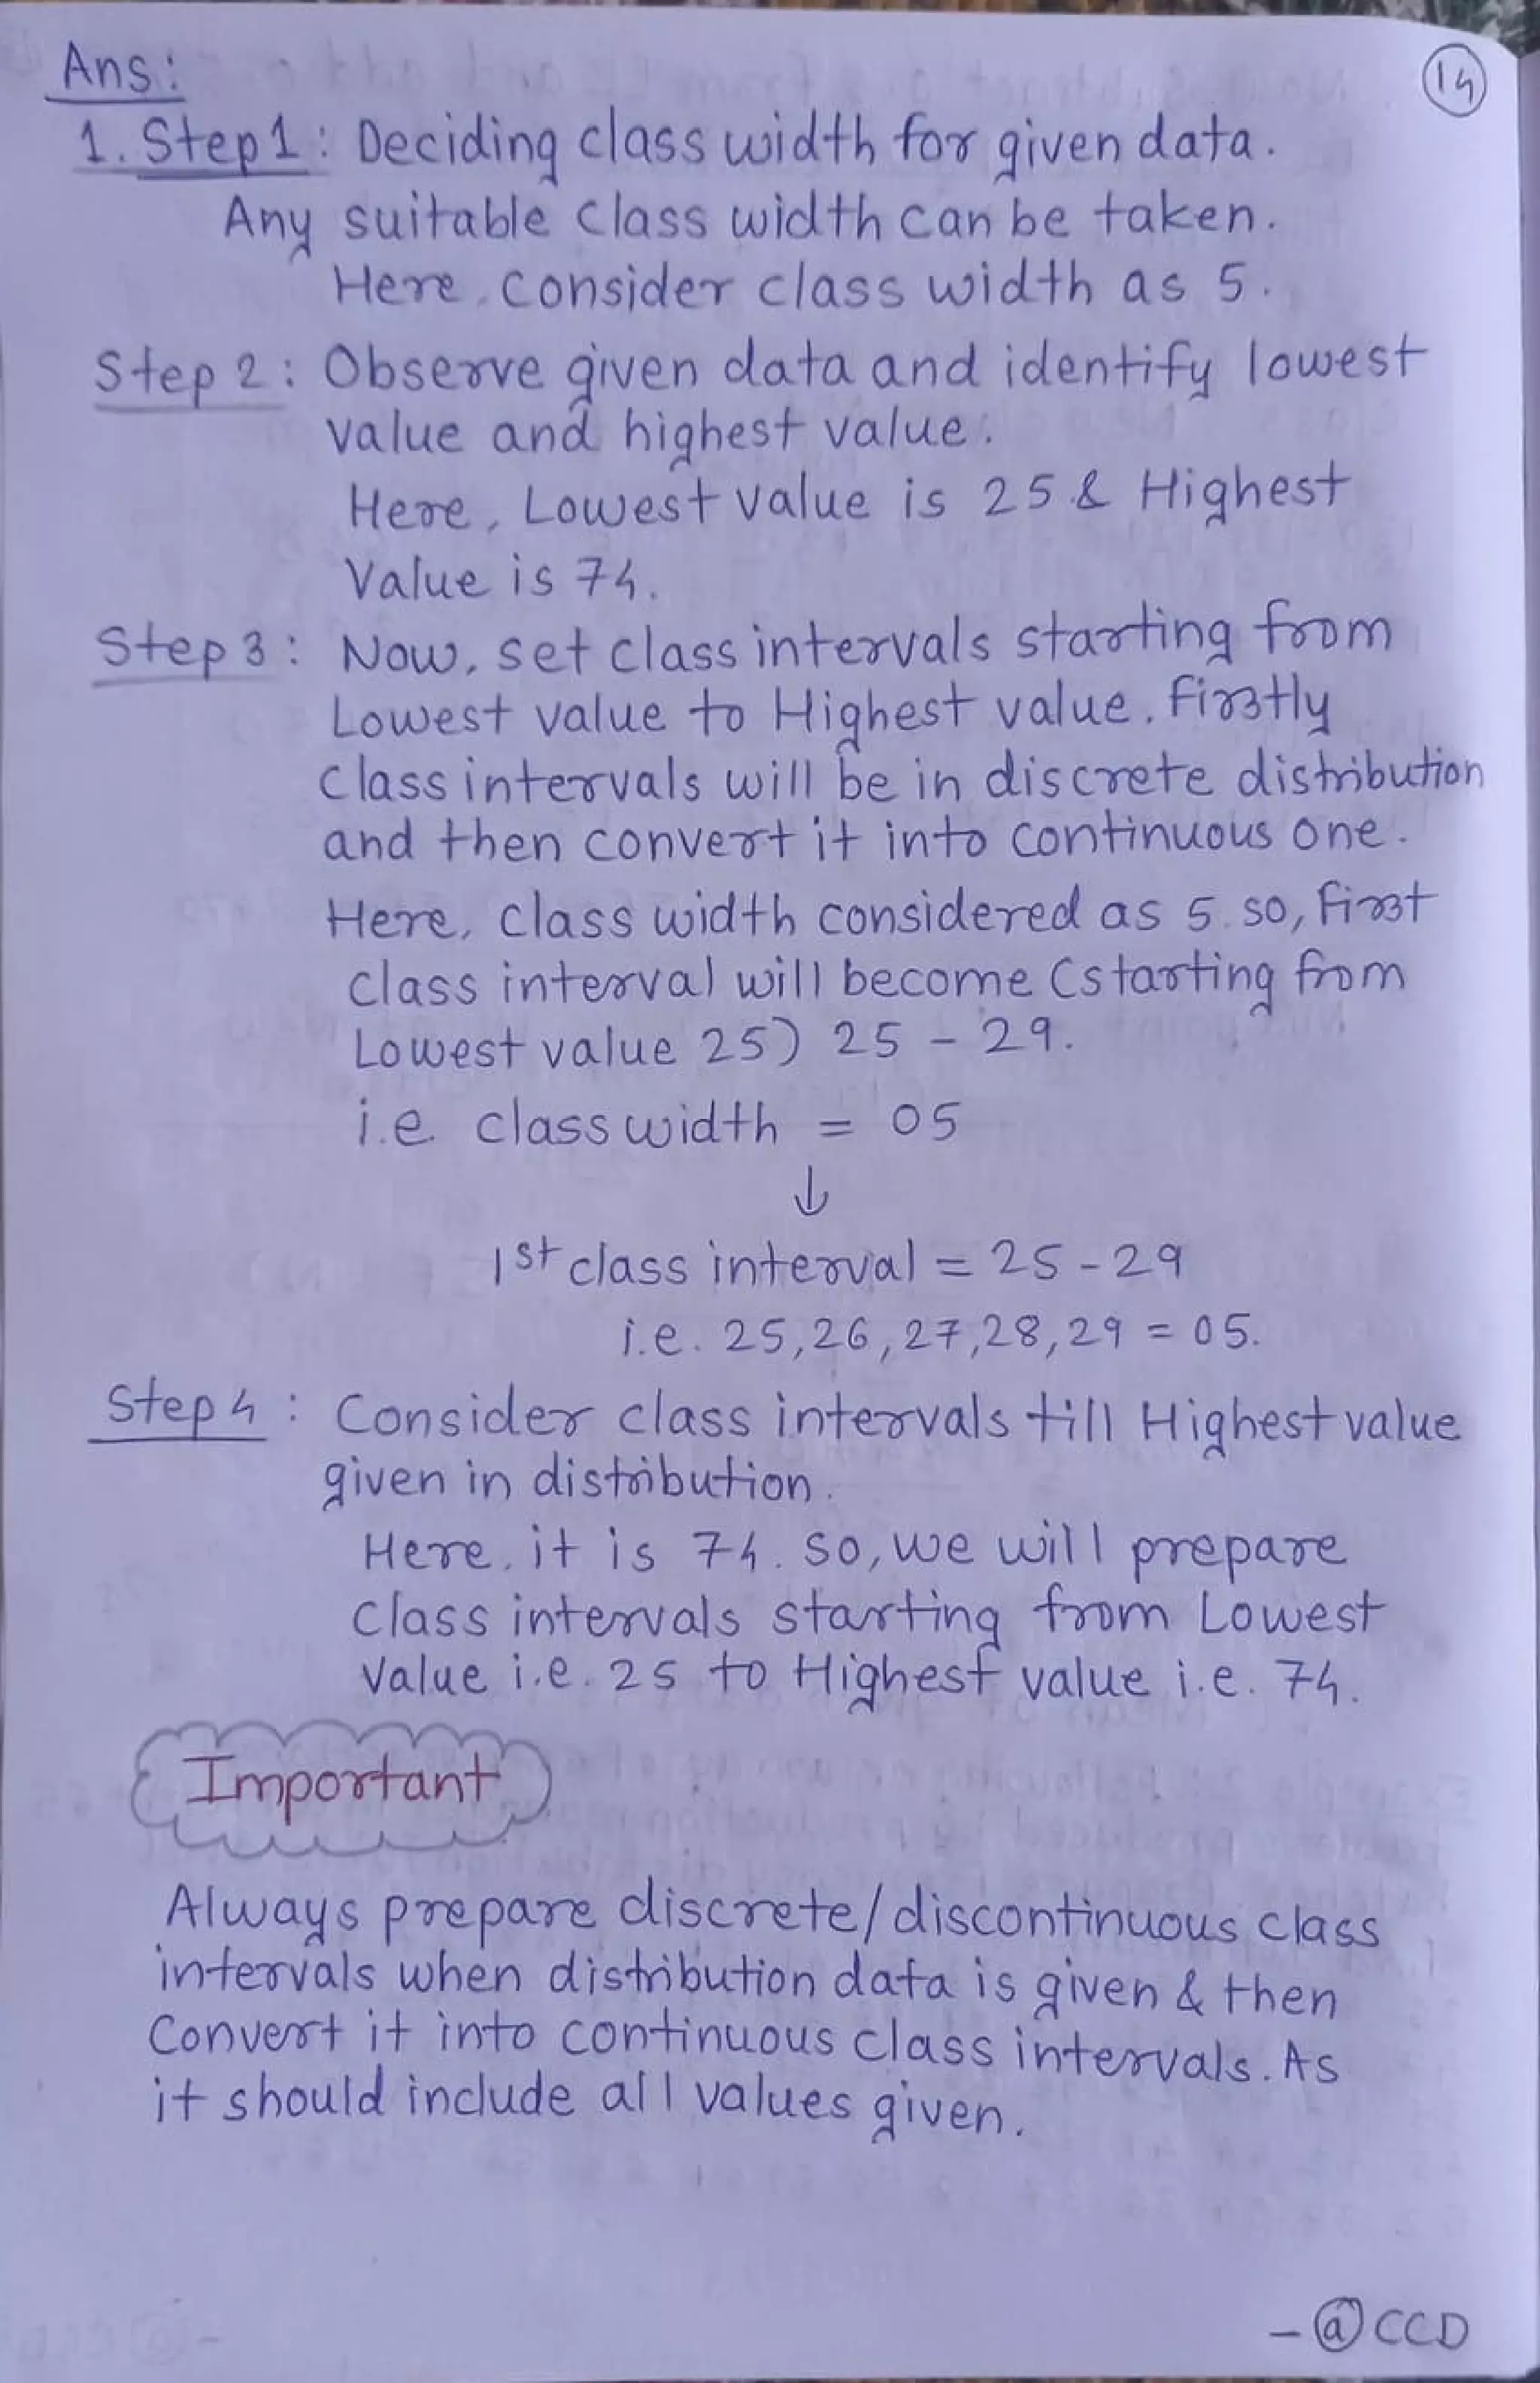 Ans:
14
1. Step 1: Deciding class width for given data.
Any suitable class width can be taken.
Here, consider class width as 5.
Step 2: Observe given data and identify lowest
value and highest value.
Here, Lowest value is 25 & Highest
Value is 74.
Step 3: Now, set class intervals starting from
Lowest value to Highest value. Firstly
class intervals will be in discrete distribution
and then convert it into continuous one.
Here, class width considered as 5. so, first
class interval will become (starting from
Lowest value 25) 25 - 29.
i.e. class width = 05
↓
1st class interval = 25 - 29
i.e. 25,26,27,28,29 = 05.
Step 4: Consider class intervals till Highest value
given in distribution.
Here, it is 74. so, we will prepare
class intervals starting from Lowest
Value i.e. 25 to Highest value i.e. 74.
Important
Always prepare discrete/discontinuous class
intervals when distribution data is given & then
Convert it into continuous class intervals. As
it should include all values given.
- @CCD